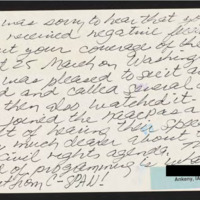 was sorry to hear that yo
received negative fee
ut your coverage of the
st 25 March on Washing
was pleased to see it a
d and called several
then also watched it
joined the NAACP as a
t of hearing these spea
much clearer about
civil rights agenda. Th
d of programming is wha
from C-SPAN!
Ankeny, IA